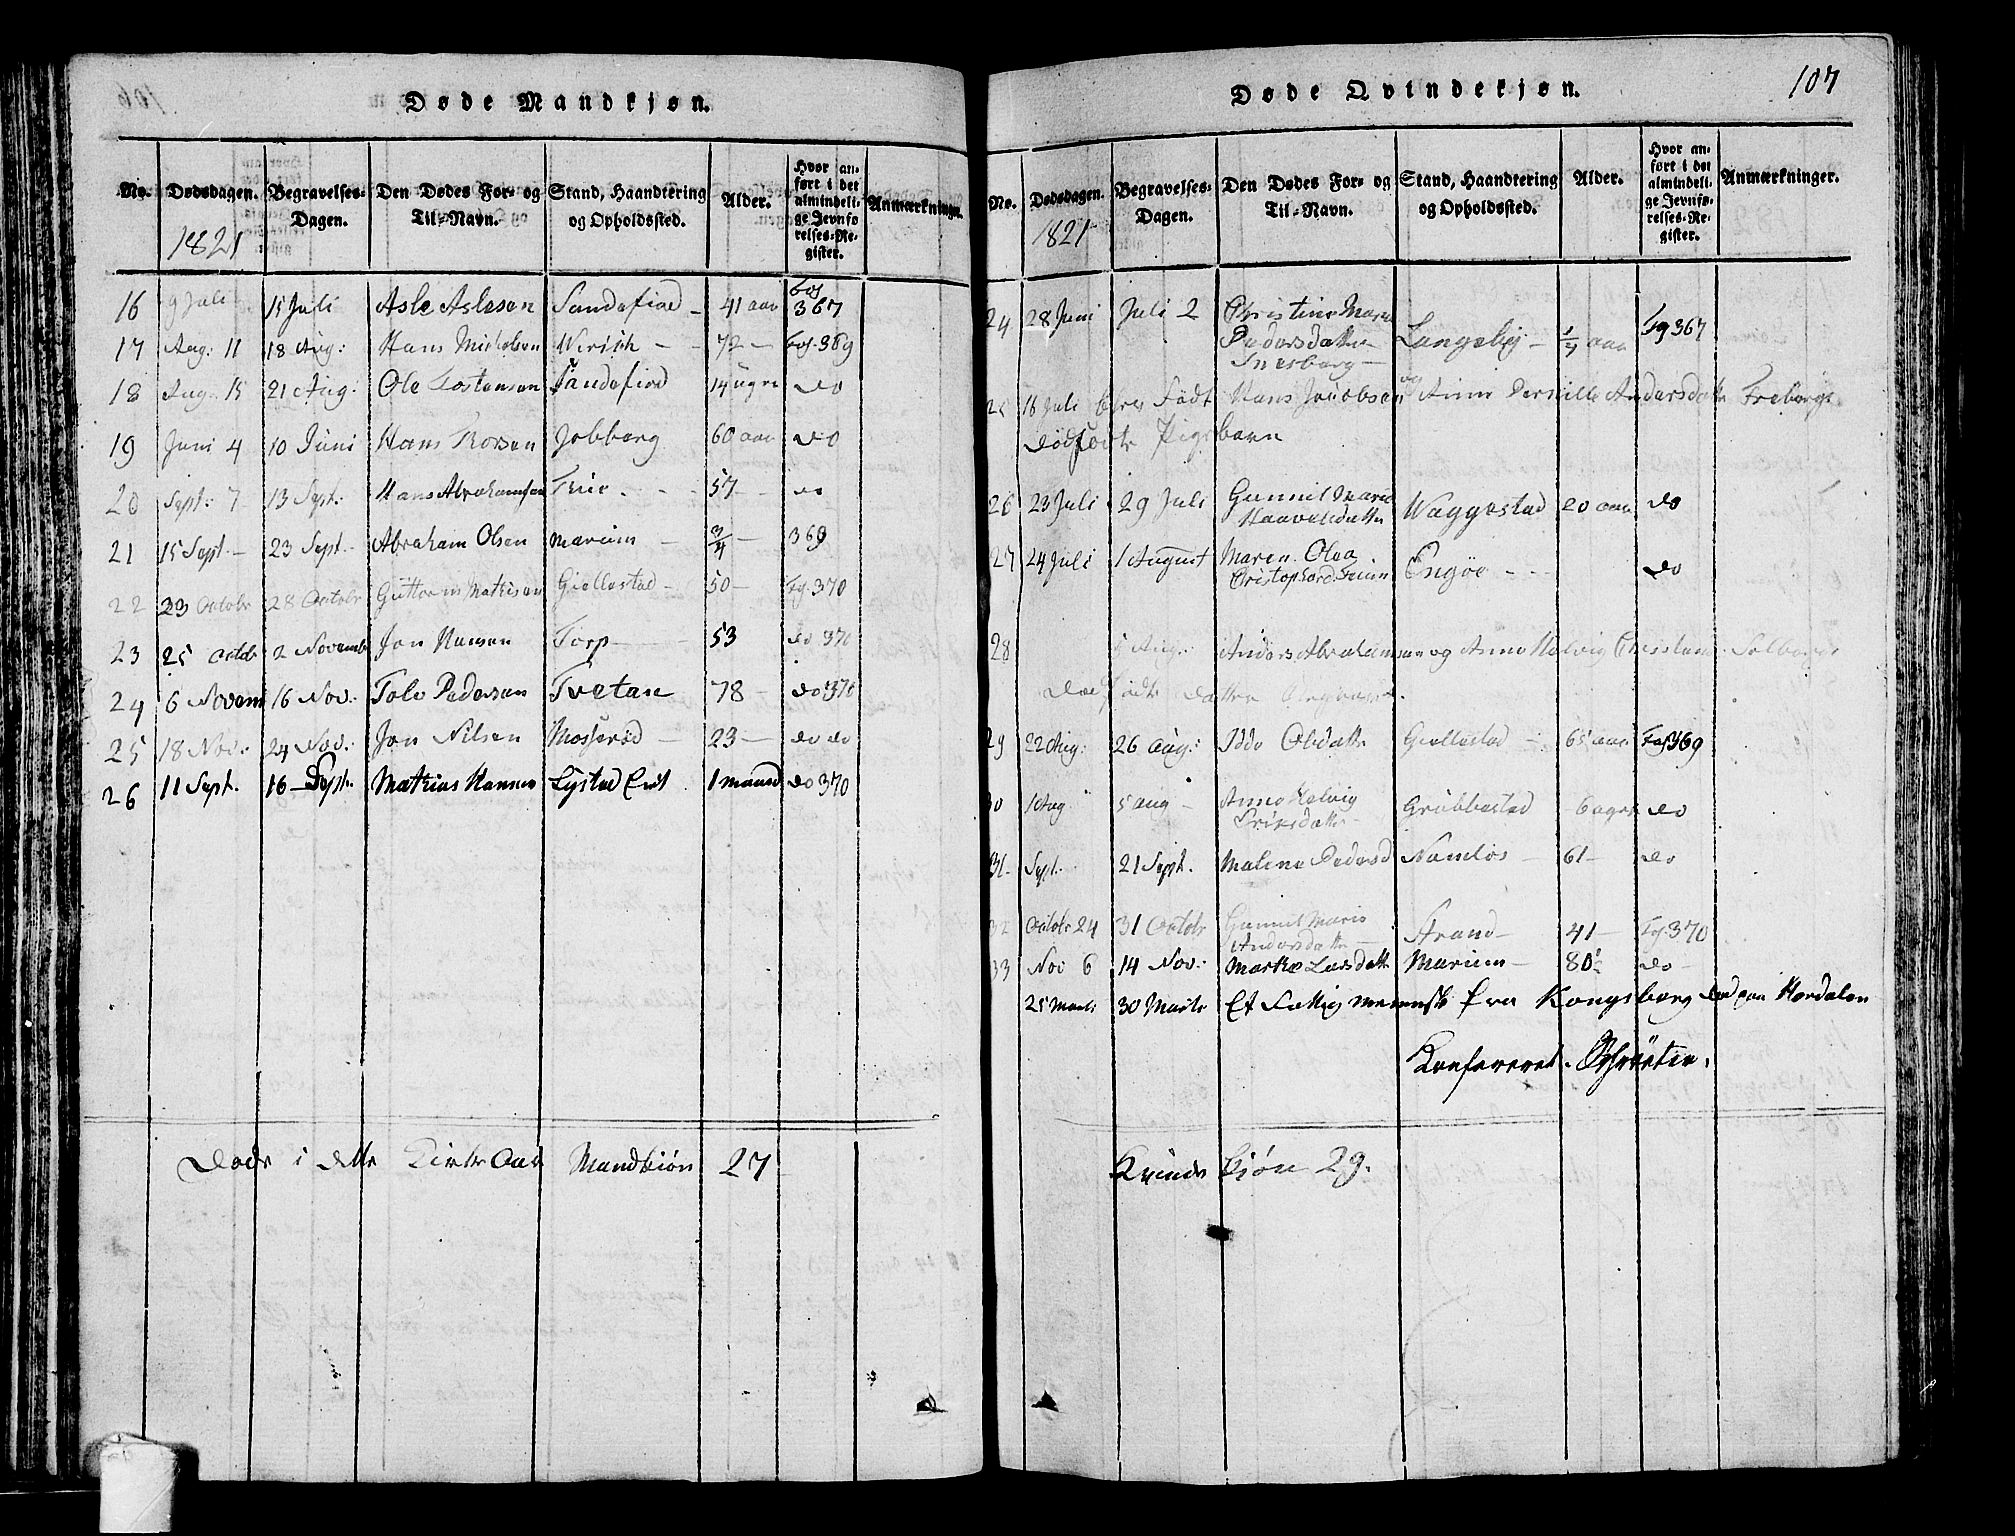 Døde Mandkjøn.
No. Dødsdagen. Begravelses-Dagen. Den Dødes For- og Til-Navn. Stand, Haandtering og Opholdssted. Alder. Hvor anført i det almindelige Jevnførelses-Register. Anmærkninger.
1821
16 9 Juli 15 Juli Asle Aslesen Sandefiord - 41 aar fog 367
17 Aug: 11 18 Aug: Hans Michelsen Virik - - 72 - fog 369
18 Aug. 15 21 Aug: Ole Tostensen Sandefiord 14 uger do
19 Juni 4 10 Juni Hans Thorsen Jobberg 60 aar do
20 Sept: 7 13 Sept: Hans Abrahamsen 57 - do
21 15 Sept - 23 Sept - Abraham Olsen Marium - 3/4 - 369
22 23 Octobr 28 Octobr Guttorm Mathisen Giellestad - 50 - Fg. 370
23 25 Octobr 2 Novemb Jon Hansen Torp 53 do 370
24 6 Novem 16 Nov: Tolv Pedersen Tvetan 78 - do 370
25 18 Nov: 24 Nov: Jon Nilsen Mosserød - 23 - do do
26 11 Sept. 16 - Sept. Mathias Hansen Lystad 1 maaned do 370
Døde i dette Kirke Aar Mandkiøn 27
Døde Qvindekjøn.
107
No. Dødsdagen. Begravelses-Dagen. Den Dødes For- og Til-Navn. Stand, Haandtering og Opholdssted. Alder. Hvor anført i det almindelige Jevnførelses-Register. Anmærkninger.
1821
24 28 Juni Juli 2 Christine Marie
Pedersdatter Langeby - aar Fg 367
25 16 Juli Født Hans Jacobsen og Anne Pernille Andersdatter Freberg
dødfødte Pigebarn
26 23 Juli 29 Juli Gunnil Marie
Haavelsdatter Waggestad 20 aar do
27 24 Juli 1 August Maren Olea
Engøe - - - do
28 5 Aug: Anders Abrahamsen og Anne Helvig
dødfødte datter
29 22 Aug: 26 Aug: Olsdatter Giellestad - 65 aar Fog 369
30 1 Aug 5 aug - Anne Helvig
Grubbestad 6 uger do
31 - Sept. 21 Sept. Malene Pedersd Namløs - 61 - do
32 Octobr 24 31 Octobr Gunnil Marie
Andersdatter - Strand - 41 - Fg. 370
33 Nov 6 14 Nov: Marthe Larsdatter Marium - 80 do -
25 Marts 30 Marts Et Fattig mennesk fra Kongsberg død paa Hordalen
Konfereret. Schrøeter.
Kvinde kjøn 29.